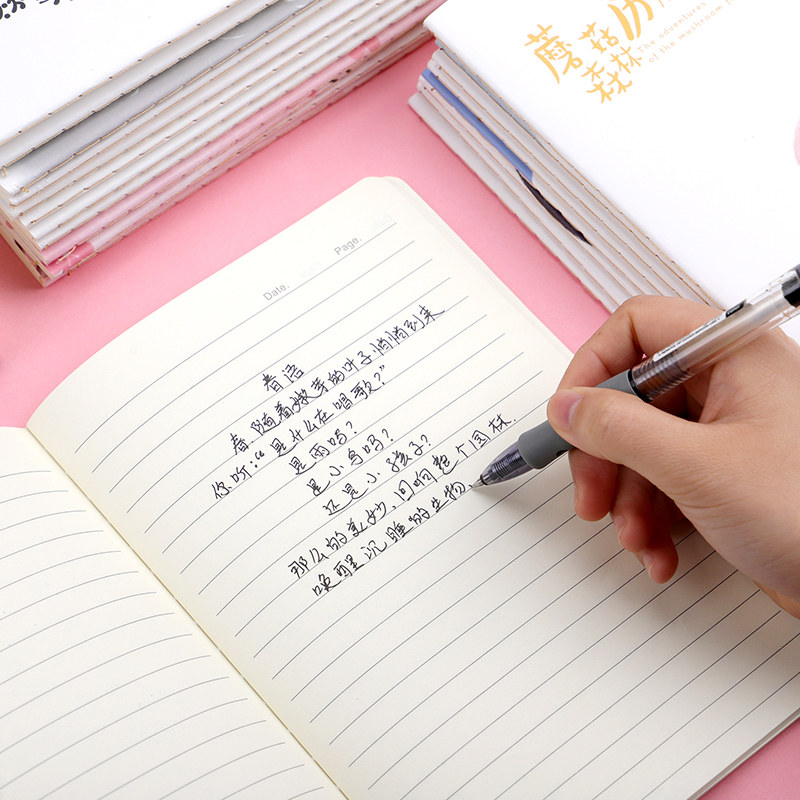 蘑菇历
森林
The adventures
of the mushroom
Date.
Page.
春语
春，随着嫩芽的叶子悄悄到来
你听：“是什么在唱歌？”
是雨吗？
是小鸟吗？
还是小孩子？
那么的美妙，回响整个园林．
唤醒沉睡的生物、